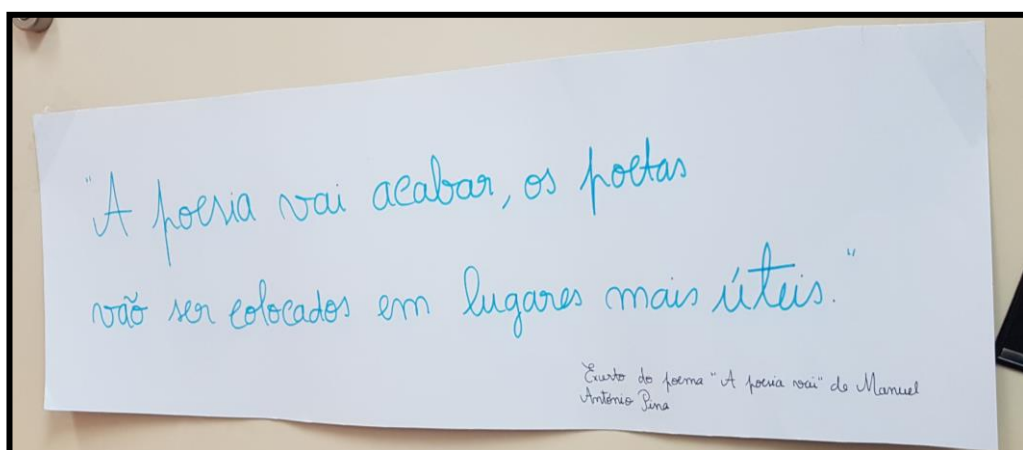 "A poesia vai acabar, os poetas
vão ser colocados em lugares mais úteis."
Exerto do poema "A poesia vai" de Manuel
António Pina